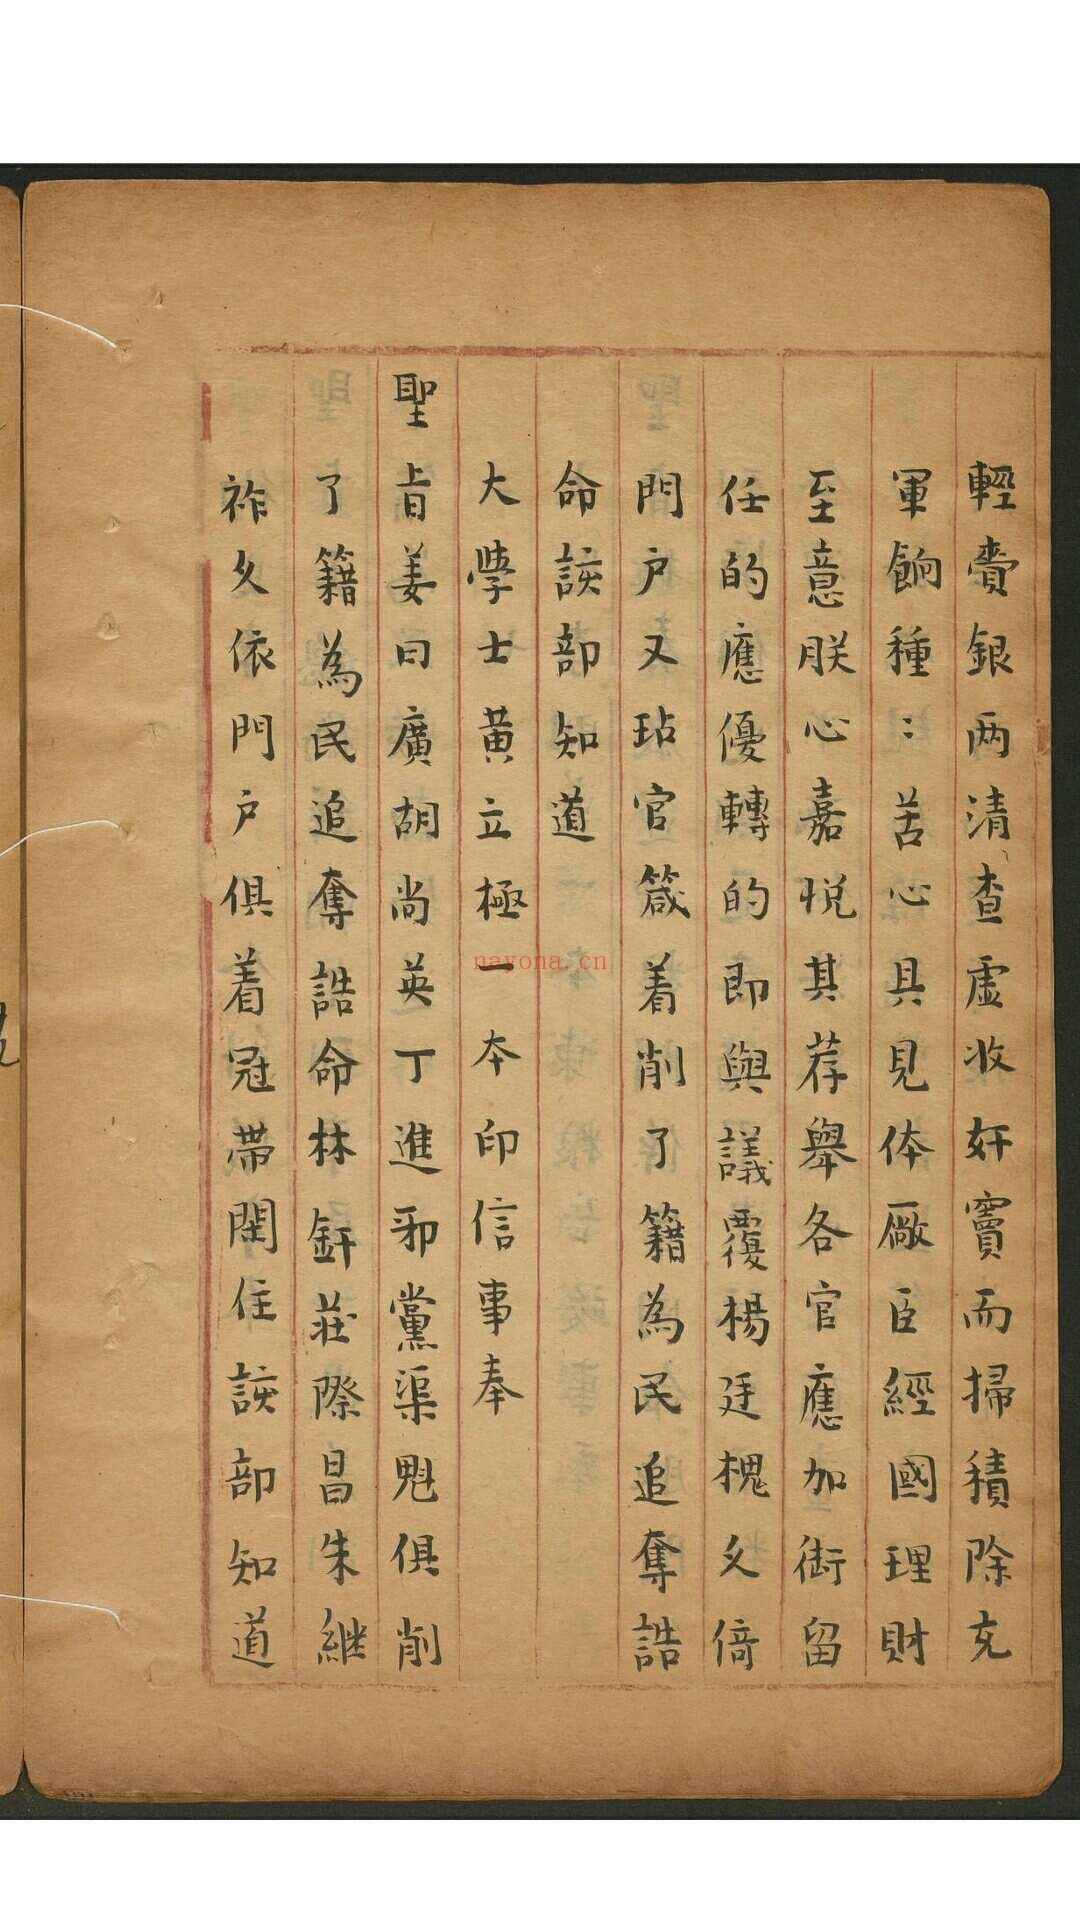 輕賫銀两清查虛收奸竇而掃積除充
軍餉種:苦心具見体厰臣經國理財
至意朕心嘉悦其荐舉各官應加銜留
任的應優轉的即與議覆楊廷槐久倚
門户又玷官箴着削了籍為民追奪誥
命該部知道
大學士黄立極一本印信事奉
聖旨姜曰廣胡尚英丁進邪黨渠魁俱削
了籍為民追奪誥命林釬莊際昌朱継
祚久依門户俱着冠帶閑住該部知道
nayona.cn